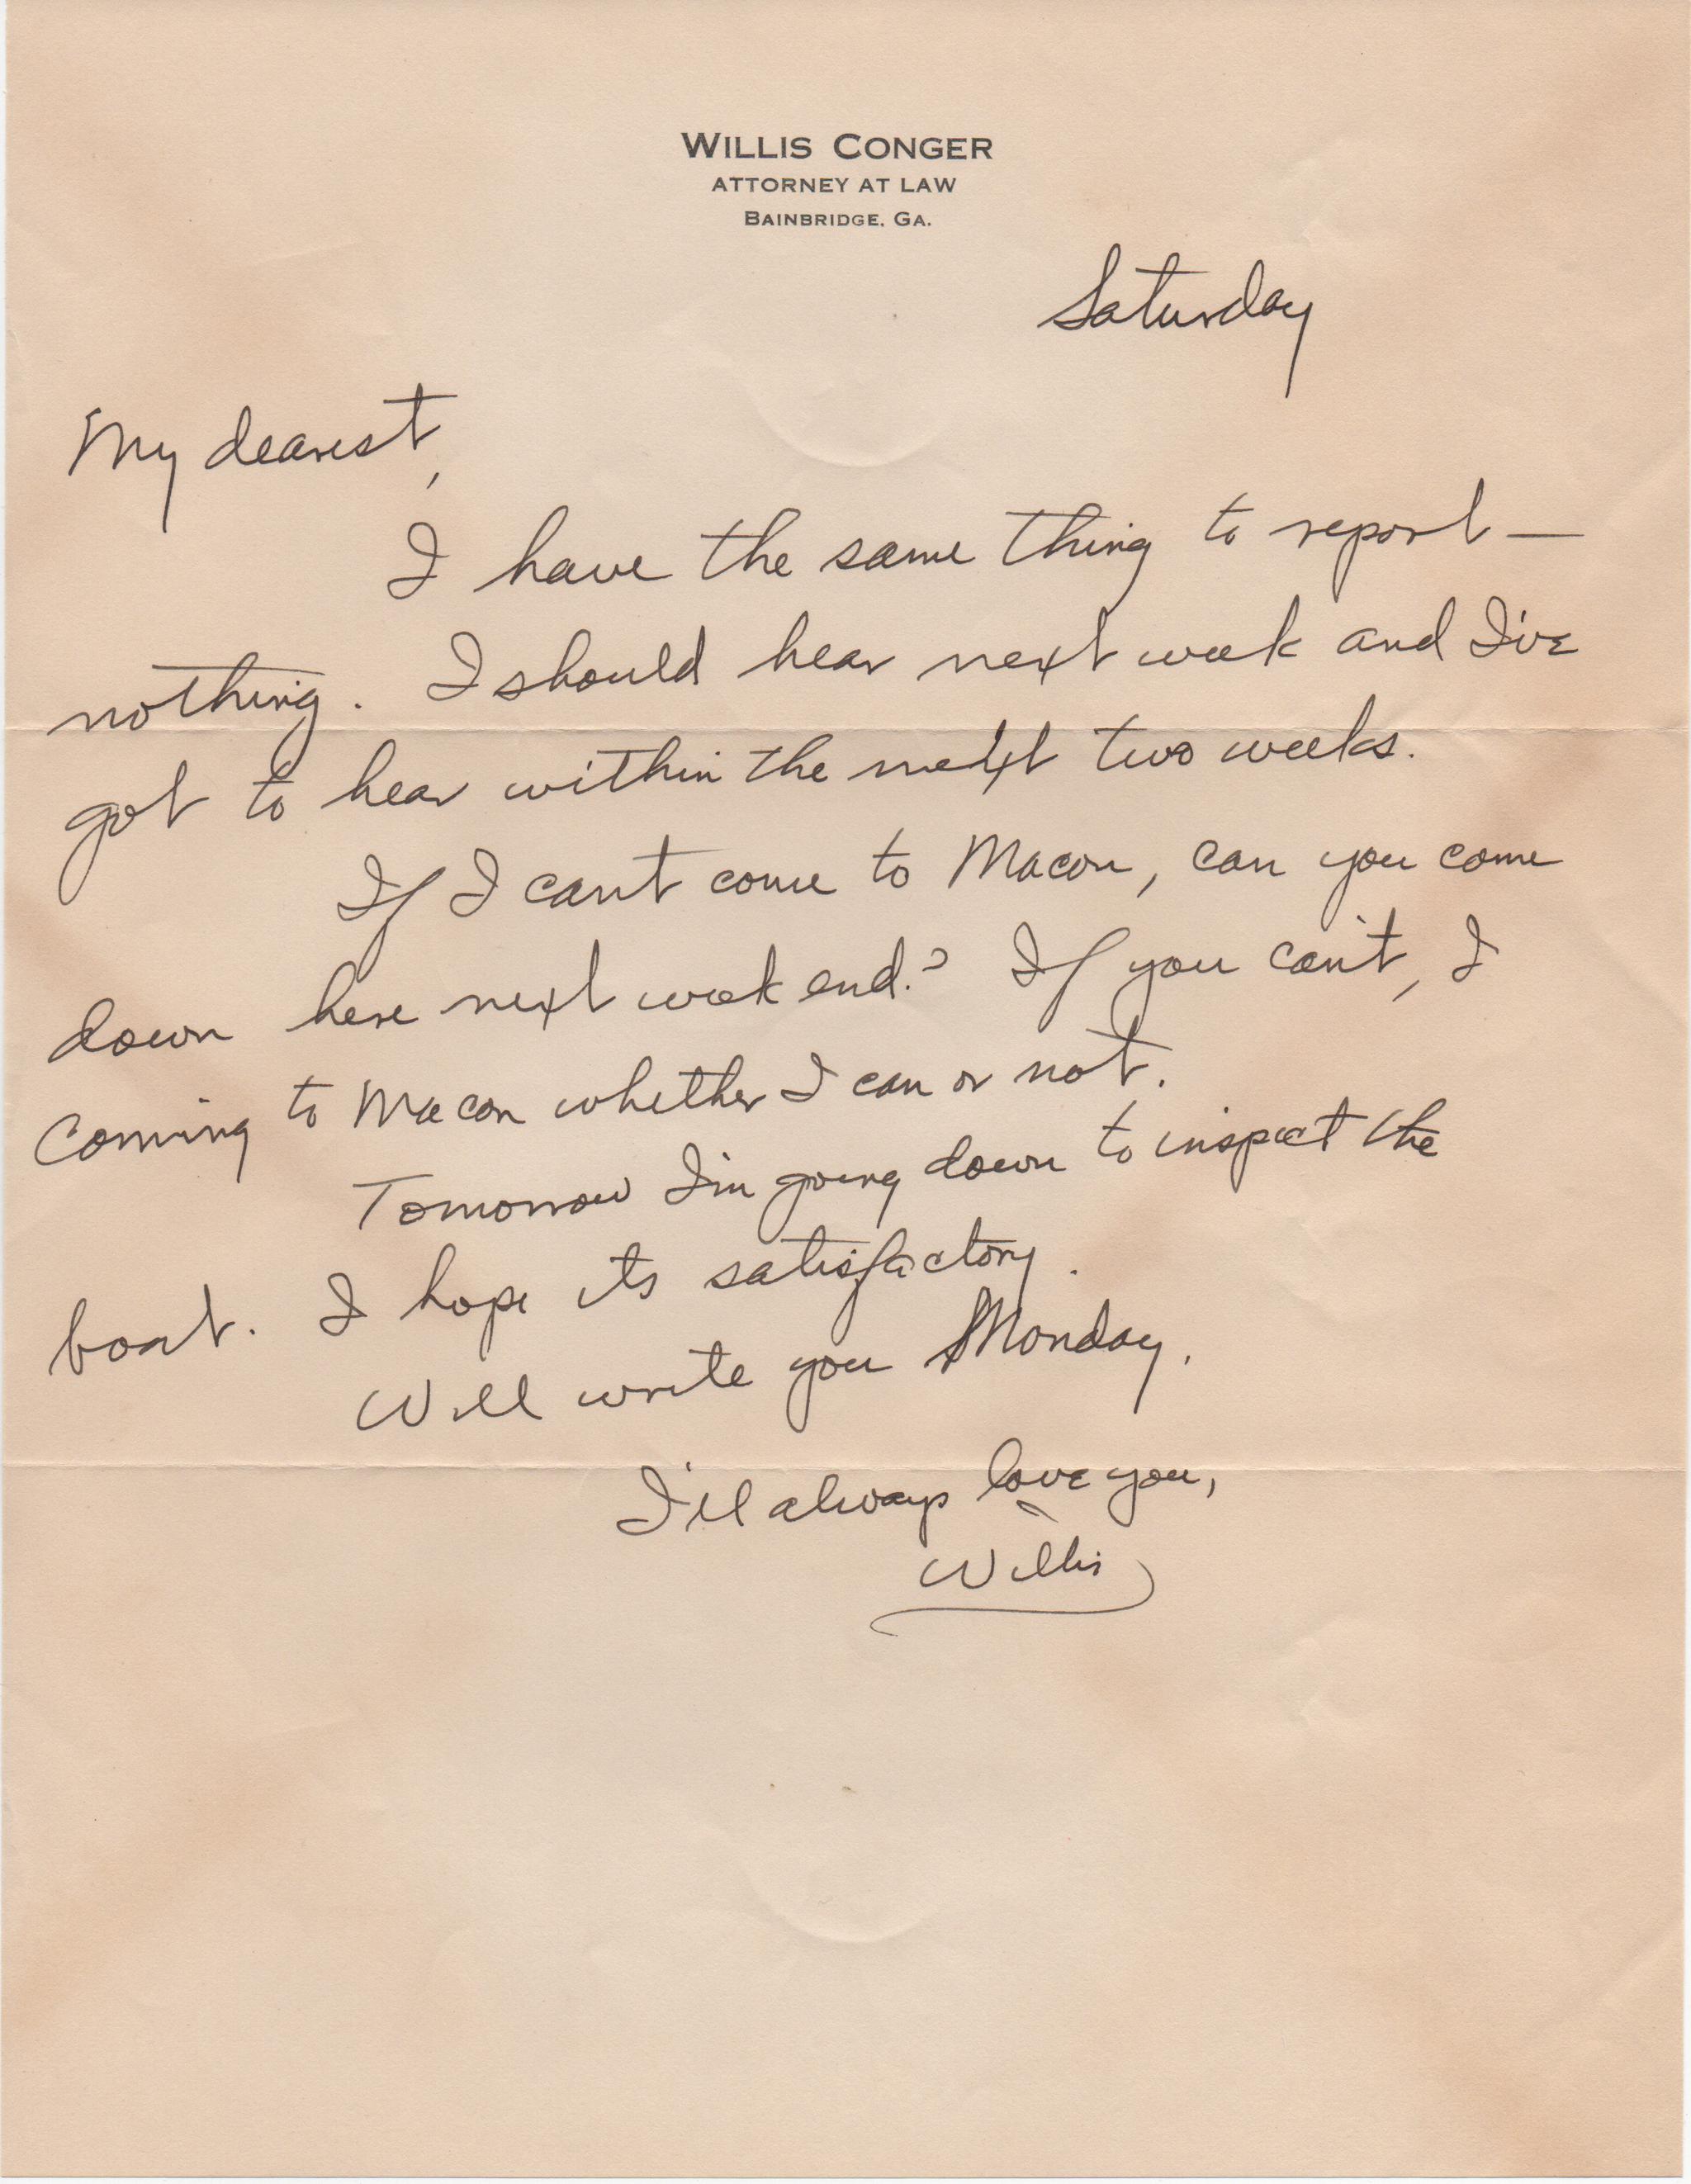 WILLIS CONGER
ATTORNEY AT LAW
BAINBRIDGE, GA.
Saturday
My dearest,
I have the same thing to report —
nothing. I should hear next week and I've
got to hear within the next two weeks.
If I can't come to Macon, can you come
down here next week end? If you can't, I
coming to Macon whether I can or not.
Tomorrow I'm going down to inspect the
boat. I hope its satisfactory.
Will write you Monday.
I'll always love you,
Willis